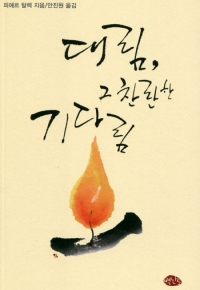 피에르 탈렉 지음/안진원 옮김
대림,
그 찬란한
기다림